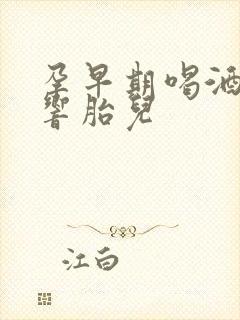 孕早期喝酒
響胎兒
江白